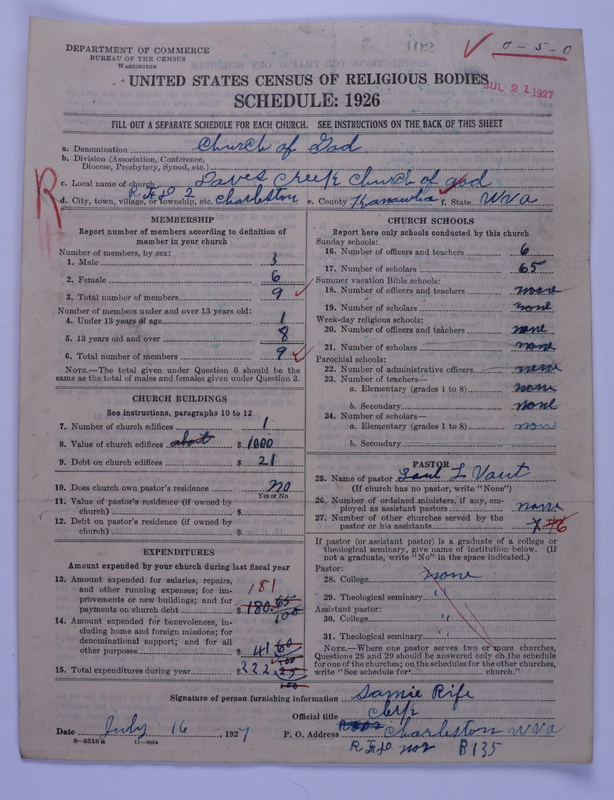 DEPARTMENT OF COMMERCE
BUREAU OF THE CENSUS
WASHINGTON
103
0-5-0
UNITED STATES CENSUS OF RELIGIOUS BODIES
JUL 21 1927
SCHEDULE: 1926
FILL OUT A SEPARATE SCHEDULE FOR EACH CHURCH. SEE INSTRUCTIONS ON THE BACK OF THIS SHEET
a. Denomination Church of God
b. Division (Association, Conference,
Diocese, Presbytery, Synod, etc.)
R
c. Local name of church Creek Church of god
d. City, town, village, or township, etc. R.F.D 2 Charleston e. County Kanawha f. State W va
MEMBERSHIP
Report number of members according to definition of
member in your church
Number of members, by sex:
1. Male 3
2. Female 6
3. Total number of members 9
Number of members under and over 13 years old:
4. Under 13 years of age 1
5. 13 years old and over 8
6. Total number of members 9
NOTE.—The total given under Question 6 should be
same as the total of males and females given under Question 3.
CHURCH BUILDINGS
See instructions, paragraphs 10 to 12
7. Number of church edifices 1
8. Value of church edifices about $ 1000
9. Debt on church edifices $ 21
10. Does church own pastor's residence no
Yes or No
11. Value of pastor's residence (if owned by
church) $
12. Debt on pastor's residence (if owned by
church) $
EXPENDITURES
Amount expended by your church during last fiscal year
13. Amount expended for salaries, repairs,
and other running expenses; for im-
provements or new buildings; and for
payments on church debt $ 181 180.65/100
14. Amount expended for benevolences, in-
cluding home and foreign missions; for
denominational support; and for all
other purposes $ 41 60/100
15. Total expenditures during year $ 222 25/100
CHURCH SCHOOLS
Report here only schools conducted by this church
Sunday schools:
16. Number of officers and teachers 6
17. Number of scholars 65
Summer vacation Bible schools:
18. Number of officers and teachers none
19. Number of scholars none
Week-day religious schools:
20. Number of officers and teachers none
21. Number of scholars none
Parochial schools:
22. Number of administrative officers none
23. Number of teachers—
a. Elementary (grades 1 to 8) none
b. Secondary none
24. Number of scholars—
a. Elementary (grades 1 to 8) none
b. Secondary
PASTOR
25. Name of pastor L Vaut
(If church has no pastor, write "None")
26. Number of ordained ministers, if any, em-
ployed as assistant pastors none
27. Number of other churches served by the
pastor or his assistants 6
If pastor (or assistant pastor) is a graduate of a college or
theological seminary, give name of institution below. (If
not a graduate, write "No" in the space indicated.)
Pastor:
28. College none
29. Theological seminary "
Assistant pastor:
30. College "
31. Theological seminary "
NOTE.—Where one pastor serves two or more churches,
Questions 28 and 29 should be answered only on the schedule
for one of the churches; on the schedules for the other churches,
write "See schedule for church."
Signature of person furnishing information Samie Rife
Official title Clerk
Date July 16, 1927 P. O. Address Charleston W va
8-5518 a 11-9064
R F D no 2 B 135